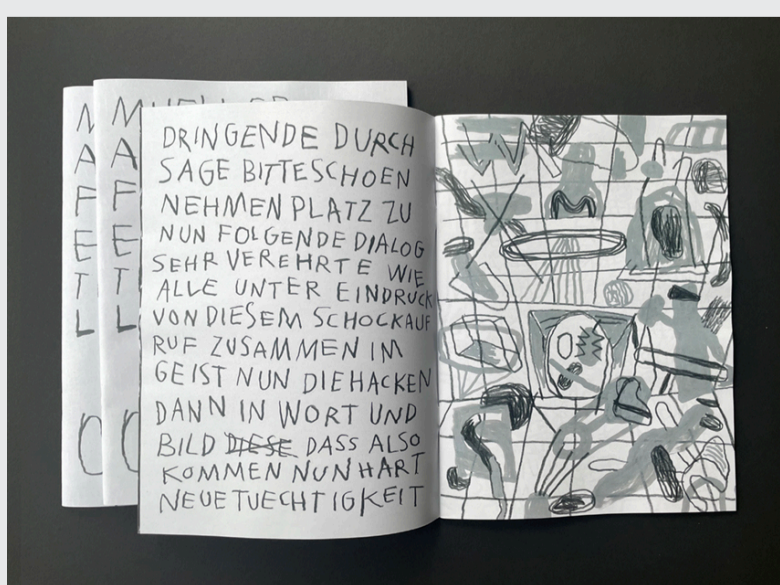 DRINGENDE DURCH
SAGE BITTESCHOEN
NEHMEN PLATZ ZU
NUN FOLGENDE DIALOG
SEHR VEREHRTE WIE
ALLE UNTER EINDRUCK
VON DIESEM SCHOCKAUF
RUF ZUSAMMEN IM
GEIST NUN DIE HACKEN
DANN IN WORT UND
BILD DIESE DASS ALSO
KOMMEN NUN HART
NEUE TUECHTIGKEIT